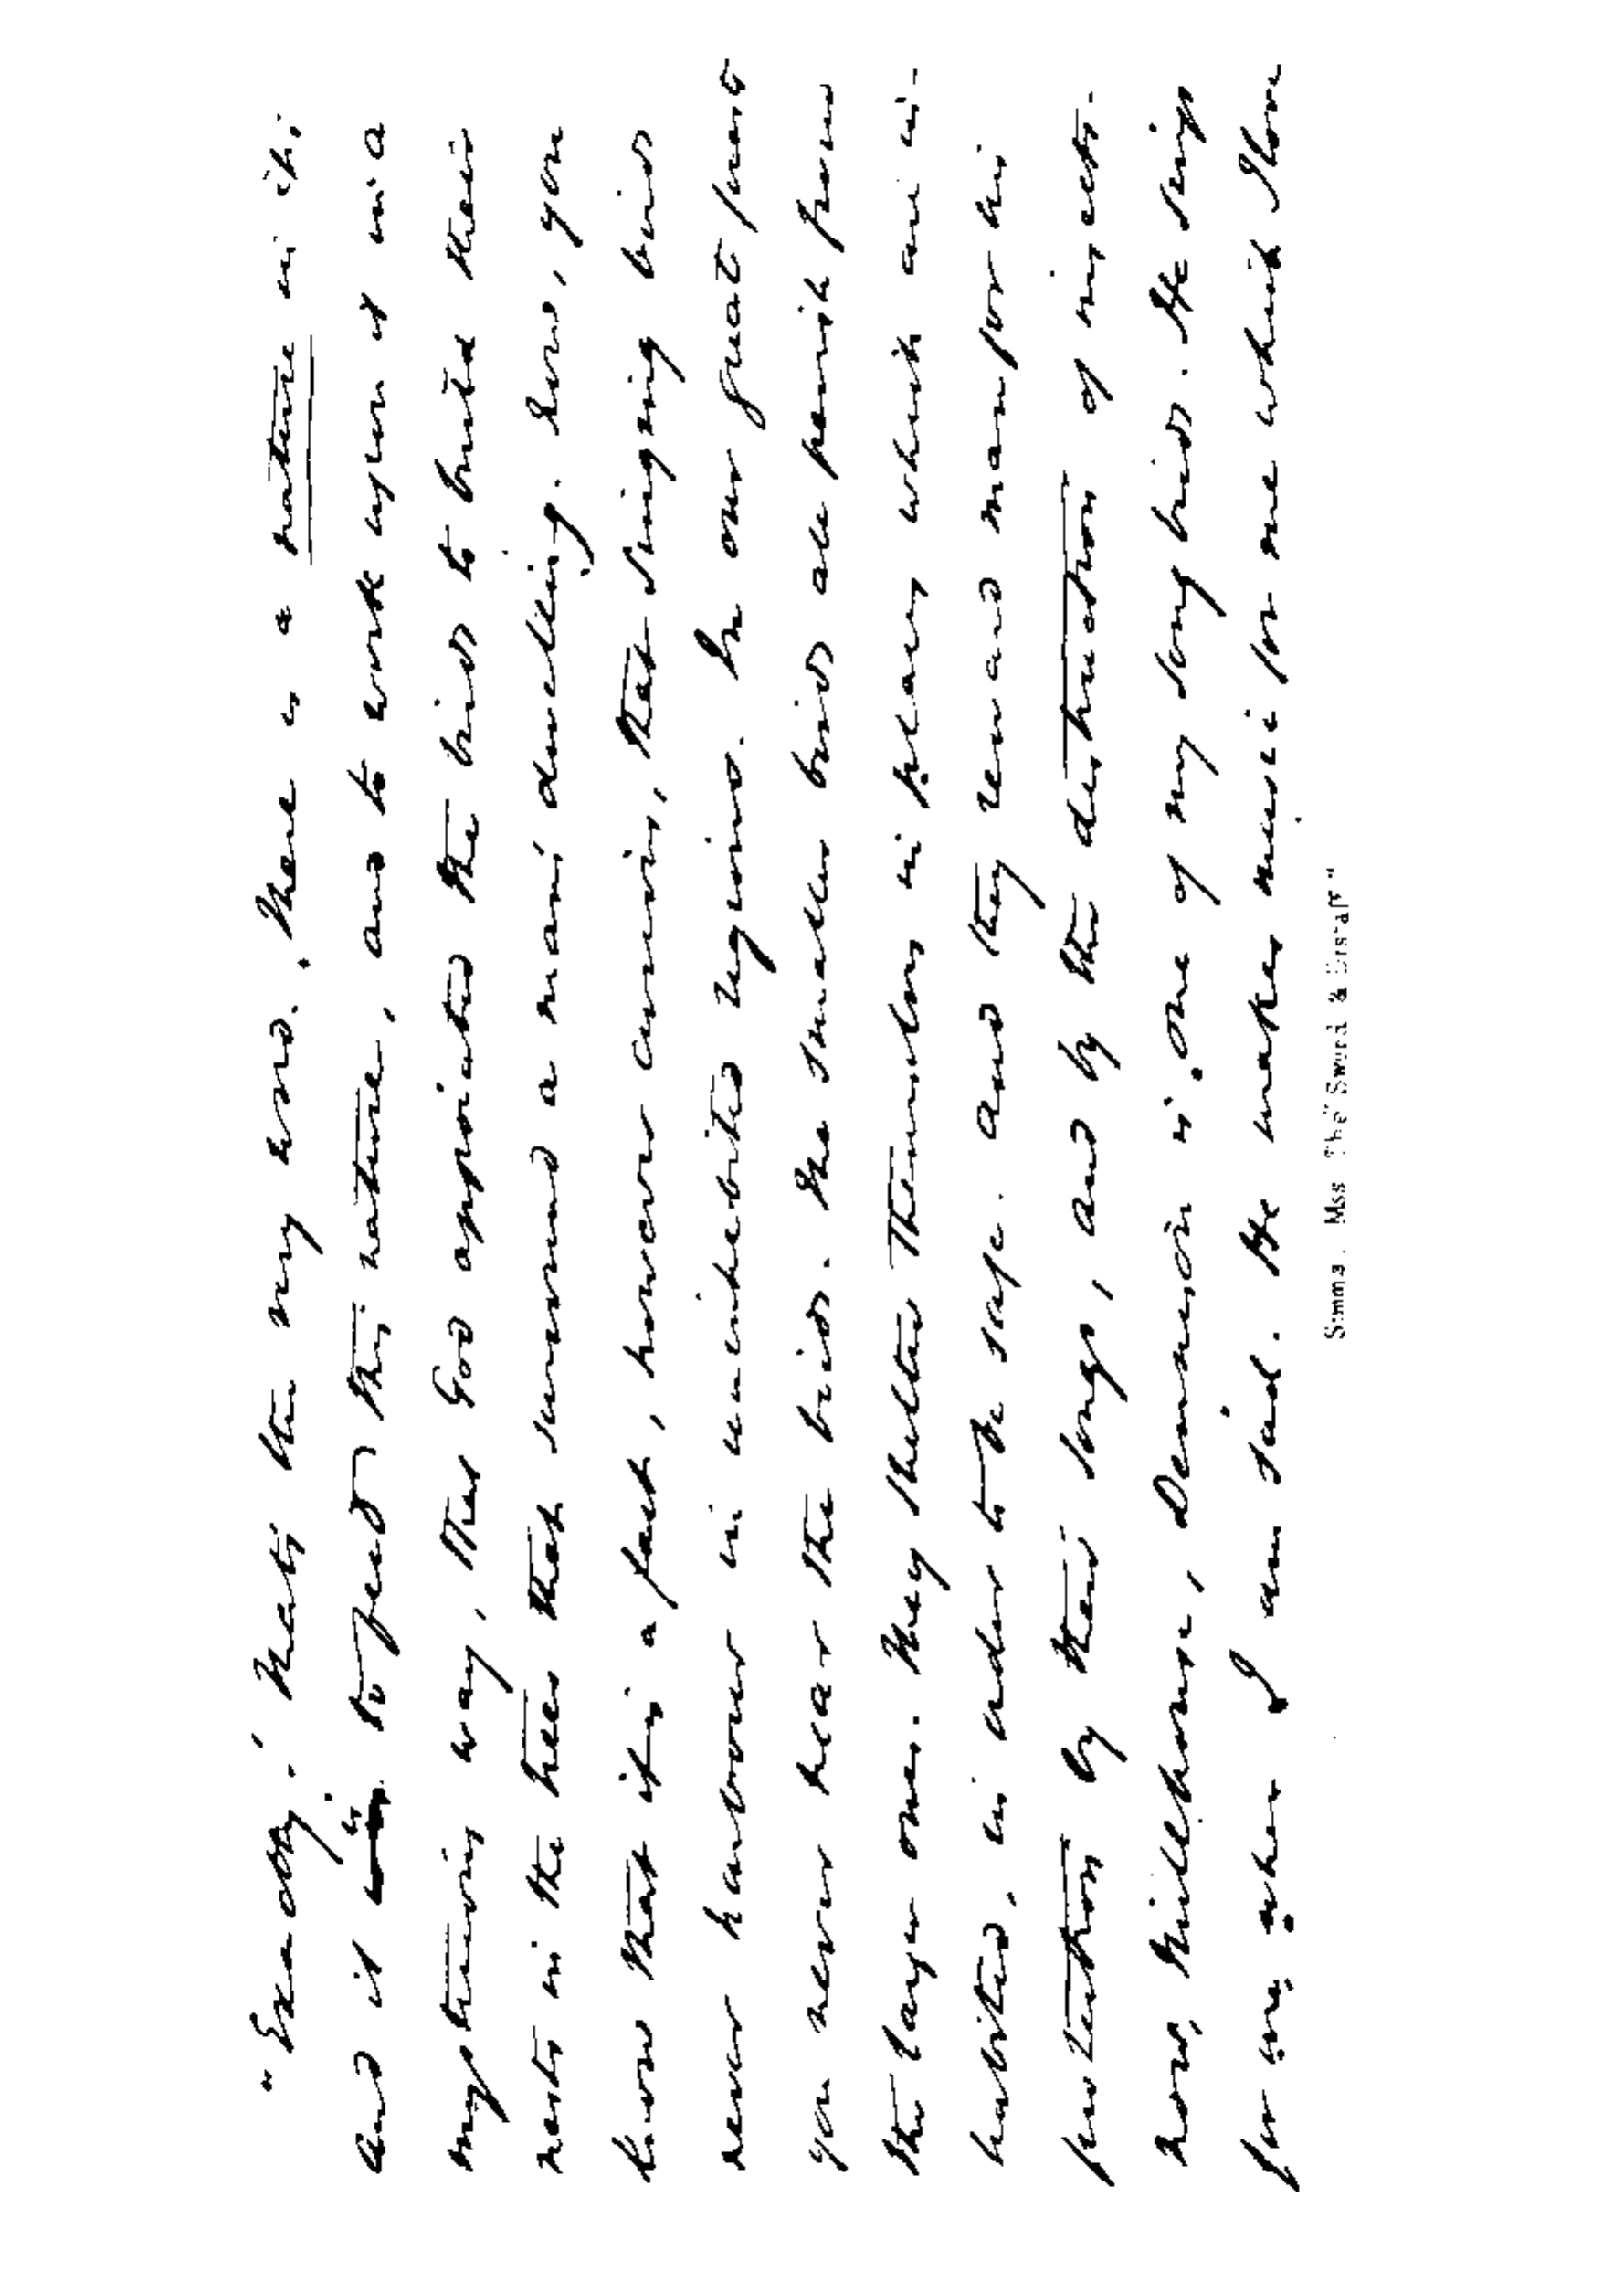 "Exactly!' That's the very word. There is a nature in it;
and it is to feed this nature, and to work upon it in a
mysterious way, that God appointed the birds to build their
nests in the trees that surround a man's dwelling. Now, you
know that it is a fact, however curious, that singing birds
never harbour in uninhabited regions. In our great
you never hear the birds. The smaller birds all perish from
the large ones. They shelter themselves in places which are in-
habited, in order to be safe. And they reward man for his
protection by their songs, and by the destruction of insects.
Now, Millhouse, Dennison is one of my song birds. He sings
for me when I am sad. He makes music for me which
Simms. Mss The "Sword & Distaff"